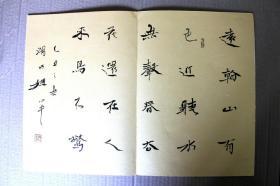 遠看山有
色近聽水
無聲春去
花還在人
來鳥不驚